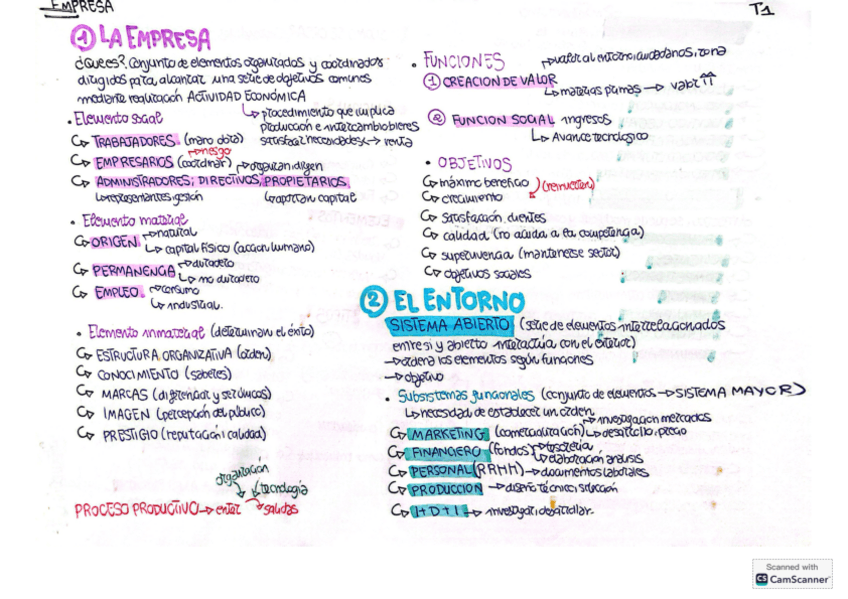 EMPRESA
T1
① LA EMPRESA
¿Qué es?. Conjunto de elementos organizados y coordinados
dirigidos para alcanzar una serie de objetivos comunes
mediante realización ACTIVIDAD ECONÓMICA
↳ procedimiento que implica
producción e intercambio bienes
satisfacer necesidades → renta
• Elemento social
↳ TRABAJADORES (mano obra)
↳ EMPRESARIOS (coordinar) → riesgo → organizan, dirigen
↳ ADMINISTRADORES, DIRECTIVOS, PROPIETARIOS.
↳ representantes gestión ↳ aportan capital
• Elemento material
↳ ORIGEN → natural
↳ capital físico (acción humana)
↳ PERMANENCIA → duradero
↳ no duradero
↳ EMPLEO. → consumo
↳ industrial.
• Elemento inmaterial (determinan el éxito)
↳ ESTRUCTURA ORGANIZATIVA (orden)
↳ CONOCIMIENTO (saberes)
↳ MARCAS (diferenciar y ser únicos)
↳ IMAGEN (percepción del público)
↳ PRESTIGIO (reputación i calidad)
organización
↳ tecnología
PROCESO PRODUCTIVO → entrar → salidas
• FUNCIONES
① CREACION DE VALOR → valor al entorno, ciudadanos, zona
↳ materias primas → valor ↑↑
② FUNCION SOCIAL ingresos
↳ Avance tecnológico
• OBJETIVOS
↳ máximo beneficio
↳ crecimiento (reinvierten)
↳ satisfacción clientes
↳ calidad (no acuda a la competencia)
↳ supervivencia (mantenerse sector)
↳ objetivos sociales
② EL ENTORNO
SISTEMA ABIERTO (serie de elementos interrelacionados
entre si y abierto interactúa con el exterior)
→ ordena los elementos según funciones
→ objetivo
• Subsistemas funcionales (conjunto de elementos → SISTEMA MAYOR)
↳ necesidad de establecer un orden
↳ MARKETING (comercialización) → investigación mercados
↳ desarrollo, precio
↳ FINANCIERO (fondos) → tesorería
↳ elaboración análisis
↳ PERSONAL (RRHH) → documentos laborales
↳ PRODUCCION → diseño técnico, solución
↳ I+D+I → investigar, desarrollar.
Scanned with
CS CamScanner